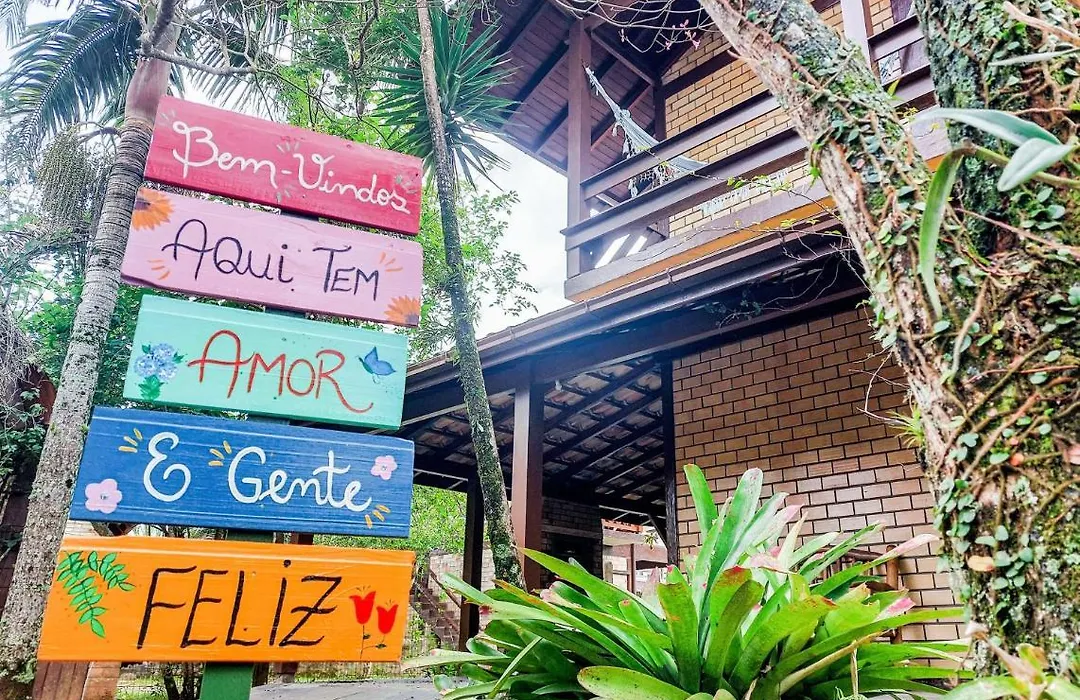 Bem-Vindos
AQUi TEM
AMOR
E Gente
FELIZ